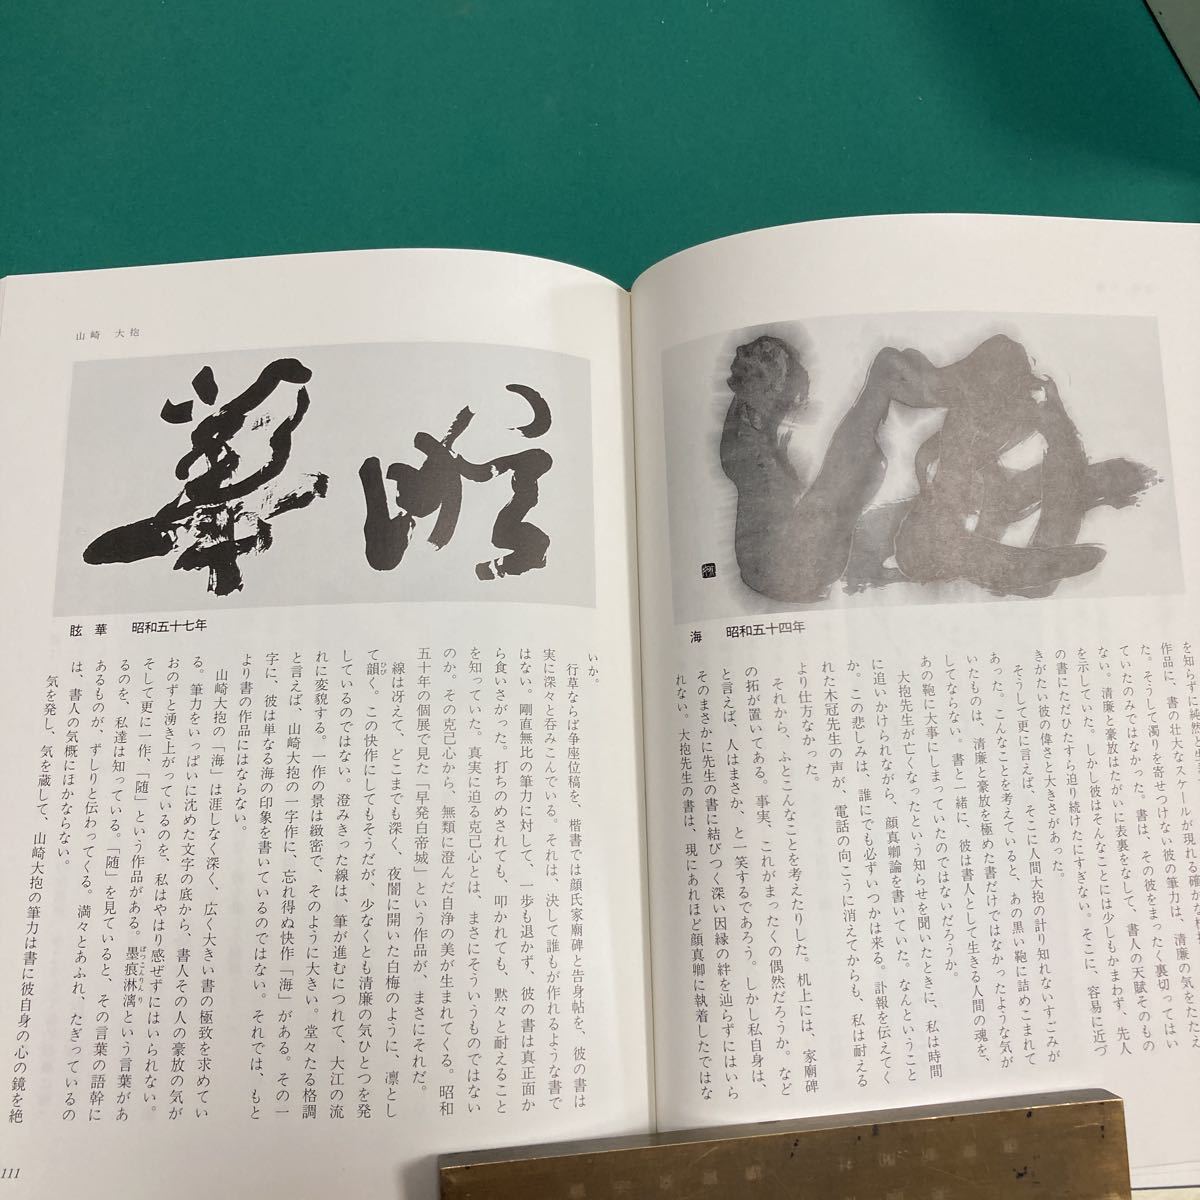 海 昭和五十四年
た。そうして濁りを寄せつけない彼の筆力は、清廉の気をたたえ
ていたのみではなかった。書は、その彼をまったく裏切ってはい
ない。清廉と豪放はたがいに表裏をなして、書人の天賦そのもの
を示していた。しかし彼はそんなことには少しもかまわず、先人
の書にただひたすら迫り続けたにすぎない。そこに、容易に近づ
きがたい彼の偉さと大きさがあった。
そうして更に言えば、そこに人間大抱の計り知れないすごみが
あった。こんなことを考えていると、あの黒い鞄に詰めこまれて
いたものは、清廉と豪放を極めた書だけではなかったような気が
してならない。書と一緒に、彼は書人として生きる人間の魂を、
あの鞄に大事にしまっていたのではないだろうか。
大抱先生が亡くなったという知らせを聞いたときに、私は時間
に追いかけられながら、顔真卿論を書いていた。なんということ
か。この悲しみは、誰にでも必ずいつかは来る。訃報を伝えてく
れた木冠先生の声が、電話の向こうに消えてからも、私は耐える
より仕方なかった。
それから、ふとこんなことを考えたりした。机上には、家廟碑
の拓が置いてある。事実、これがまったくの偶然だろうか。など
と言えば、人はまさか、と一笑するであろう。しかし私自身は、
そのまさかに先生の書に結びつく深い因縁の絆を辿らずにはいら
れない。大抱先生の書は、現にあれほど顔真卿に執着したではな
山崎 大抱
眩華
眩 華 昭和五十七年
いか。
行草ならば争座位稿を、楷書では顔氏家廟碑と告身帖を、彼の書は
実に深々と呑みこんでいる。それは、決して誰もが作れるような書で
はない。剛直無比の筆力に対して、一歩も退かず、彼の書は真正面か
ら食いさがった。打ちのめされても、叩かれても、黙々と耐えること
を知っていた。真実に迫る克己心とは、まさにそういうものではない
のか。その克己心から、無類に澄んだ自浄の美が生まれてくる。昭和
五十年の個展で見た「早発白帝城」という作品が、まさにそれだ。
線は冴えて、どこまでも深く、夜闇に開いた白梅のように、凛とし
て韻く。この快作にしてもそうだが、少なくとも清廉の気ひとつを発
しているのではない。澄みきった線は、筆が進むにつれて、大江の流
れに変貌する。一作の景は緻密で、そのように大きい。堂々たる格調
と言えば、山崎大抱の一字作に、忘れ得ぬ快作「海」がある。その一
字に、彼は単なる海の印象を書いているのではない。それでは、もと
より書の作品にはならない。
山崎大抱の「海」は涯しなく深く、広く大きい書の極致を求めてい
る。筆力をいっぱいに沈めた文字の底から、書人その人の豪放の気が
おのずと湧き上がっているのを、私はやはり感ぜずにはいられない。
そして更に一作、「随」という作品がある。墨痕淋漓という言葉があ
るのを、私達は知っている。「随」を見ていると、その言葉の語幹に
あるものが、ずしりと伝わってくる。満々とあふれ、たぎっているの
は、書人の気概にほかならない。
気を発し、気を蔵して、山崎大抱の筆力は書に彼自身の心の鏡を絶
111